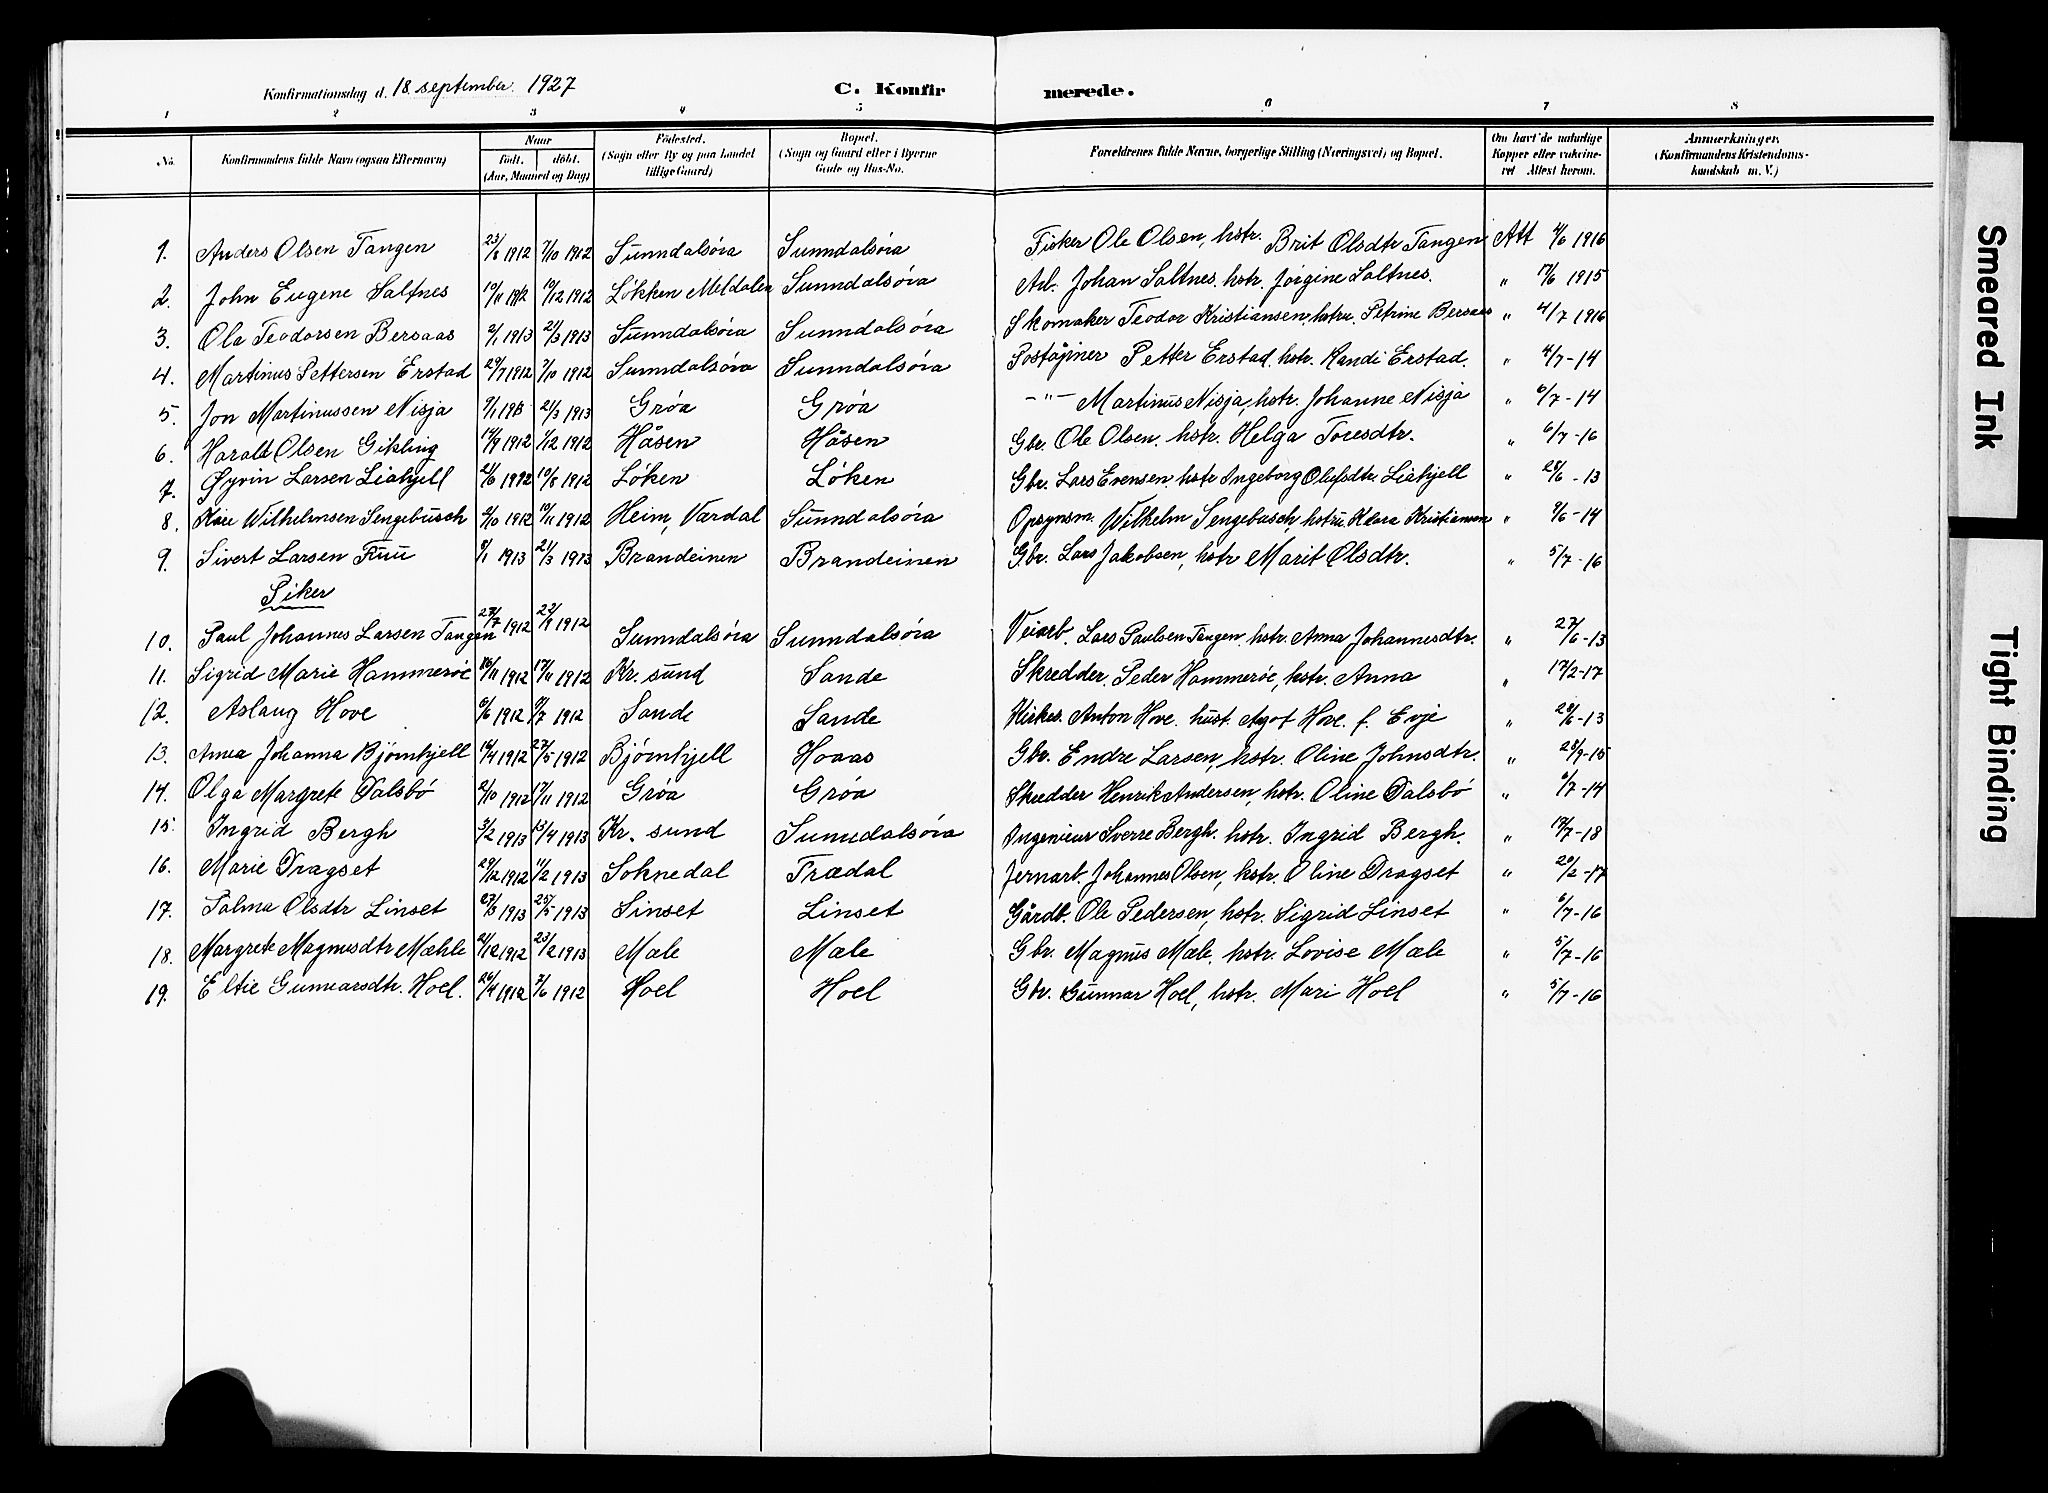 Konfirmationsdag d. 18. september 1927 C. Konfirmerede.
1 2 3 4 5 6 7 8
No. Konfirmandens fulde Navn (ogsaa Efternavn) Naar født. døbt. (Aar, Maaned og Dag) Fødested. (Sogn eller By og paa Landet tillige Gaard) Bopæl. (Sogn og Gaard eller i Byerne Gade og Hus-No. Forældrenes fulde Navne, borgerlige Stilling (Næringsvei) og Bopæl. Om havt de naturlige Kopper eller vakcineret Attest herom. Anmærkninger. (Konfirmandens Kristendomskundskab m. V.)
1. Anders Olsen Tangen 23/8 1912 7/10 1912 Sunndalsøra Sunndalsøra Fisker Ole Olsen, hstr. Brit Olsdtr Tangen Att 1916
2. John Eugene Saltnes 10/11 1912 19/12 1912 Løkken Meldalen Sunndalsøra Arb. Johan Saltnes. hstr. Jørgine Saltnes. " 17/6 1915
3. Ola Teodorsen Bersaas 2/1 1913 21/3 1913 Sunndalsøra Sunndalsøra Skomaker Teodor Kristiansen, hstru. Petrine Bersaas " 4/7 1916
4. Martinus Pettersen Erstad 29/7 1912 7/10 1912 Sunndalsøra Sunndalsøra Petter Erstad hstr. Randi Erstad. " 4/7-14
5. Jon Martinussen Nisja 9/1 1913 21/3 1913 Grøa Grøa -"- Martinus Nisja, hstr. Johanne Nisja " 6/7-14
6. Harald Olsen Gikling 14/9 1912 1/12 1912 Håsen Håsen Gbr. Ole Olsen. hstr. Helga Toresdtr. " 6/7-16
7. Øyvin Larsen Liahjell 1912 10/8 1912 Løken Løken Gbr. Lars Evensen. hstr Ingeborg Olufsdtr. Liahjell " 28/6-13
8. Kåre Wilhelmsen Sengebusch 2/10 1912 10/11 1912 Heim, Værdal Sunndalsøra Opsynsm. Wilhelm Sengebusch, hstru. Klara Kristiansen " 9/6-14
9. Sivert Larsen Furu 8/1 1913 21/3 1913 Brandeinen Brandeinen Gbr. Lars Jakobsen, hstr Marit Olsdtr. " 5/7-16
Piker
10. Paul Johannes Larsen Tangen 27/7 1912 1912 Sunndalsøra Sunndalsøra Veiarb. Lars Paulsen Tangen. hstr. Anna Johannesdtr. " 27/6-13
11. Sigrid Marie Hammerøe 16/11 1912 17/11 1912 Kr. sund Sande Skredder. Peder Hammerøe, hstr. Anna " 17/2-17
12. Aslaug Hove 6/6 1912 9/7 1912 Sande Sande Kirkes. Anton Hove. hust. Agot Hove. f. Evje " 28/6-13
13. Anna Johanna Bjørnhjell 16/4 1912 27/5 1912 Bjørnhjell Hoaas Gbr. Endre Larsen, hstr. Oline Johnsdtr. " 28/9-15
14. Olga Margrete Dalsbø 2/10 1912 17/11 1912 Grøa Grøa Skredder Henrik Andersen, hstr. Oline Dalsbø " 6/7-14
15. Ingrid Bergh 3/2 1913 13/4 1913 Kr. sund Sunndalsøra Ingeniør Sverre Bergh. hstr. Ingrid Bergh. " 17/7-18
16. Marie Dragset 29/12 1912 11/2 1913 Soknedal Trædal Jernarb. Johannes Olsen, hstr. Oline Dragset " 20/2-17
17. Salma Olsdtr Linset 27/3 1913 25/5 1913 Linset Linset Gårdb. Ole Pedersen, hstr. Sigrid Linset " 6/7-16
18. Margrete Magnusdtr Mæhle 21/12 1912 23/2 1913 Mæle Mæle Gbr. Magnus Mæle. hstr. Lovise Mæle " 5/7-16
19. Eltie Gunnarsdtr. Hoel. 26/4 1912 7/6 1912 Hoel Hoel Gbr. Gunnar Hoel, hstr. Mari Hoel " 5/7-16
Smeared Ink
Tight Binding